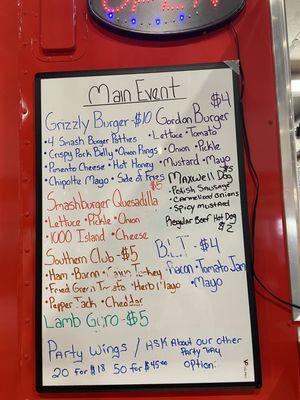 OPEN
Main Event
Grizzly Burger-$10
• 4 Smash Burger Patties
• Crispy Pork Belly • Onion Rings
• Pimento Cheese • Hot Honey
• Chipolte Mayo • Side of Fries
Gordon Burger $4
• Lettuce • Tomato
• Onion • Pickle
• Mustard • Mayo
SmashBurger Quesadilla $5
• Lettuce • Pickle • Onion
• 1000 Island • Cheese
Maxwell Dog $5
• Polish Sausage
• Carmelized Onions
• Spicy Mustard
Regular Beef Hot Dog $2
Southern Club-$5
• Ham • Bacon • Turkey
• Fried Green Tomato • Herb Mayo
• Pepper Jack • Cheddar
B.L.T - $4
• Bacon • Tomato Jam
• Mayo
Lamb Gyro-$5
Party Wings / ASK About our other
Party Tray
20 for $18 50 for $45.00 Option: